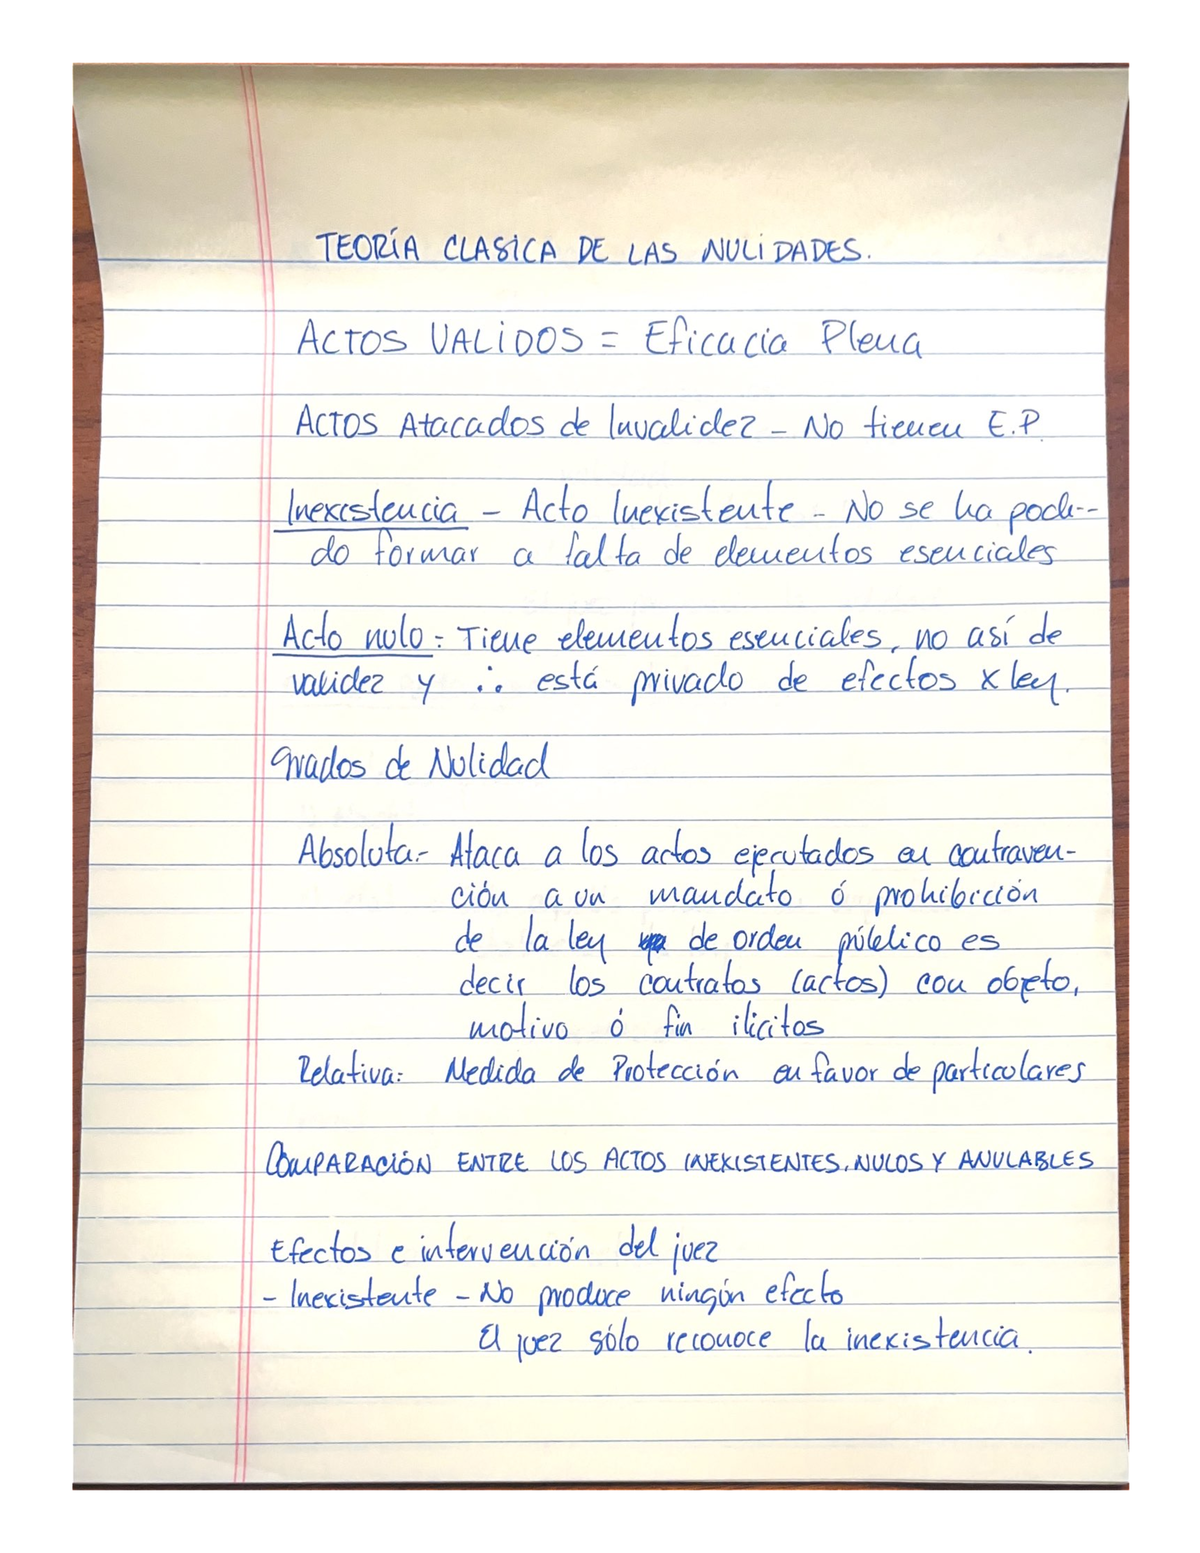 TEORÍA CLASICA DE LAS NULIDADES.
ACTOS VALIDOS = Eficacia Plena
ACTOS Atacados de Invalidez - No tienen E.P.
Inexistencia - Acto Inexistente - No se ha podi--
do formar a falta de elementos esenciales
Acto nulo: Tiene elementos esenciales, no así de
validez y ∴ está privado de efectos x ley.
Grados de Nulidad
Absoluta.- Ataca a los actos ejecutados en contraven-
ción a un mandato ó prohibición
de la ley de orden público es
decir los contratos (actos) con objeto,
motivo ó fin ilicitos
Relativa: Medida de Protección en favor de particulares
COMPARACIÓN ENTRE LOS ACTOS INEXISTENTES, NULOS Y ANULABLES
Efectos e intervención del juez
- Inexistente - No produce ningún efecto
El juez sólo reconoce la inexistencia.